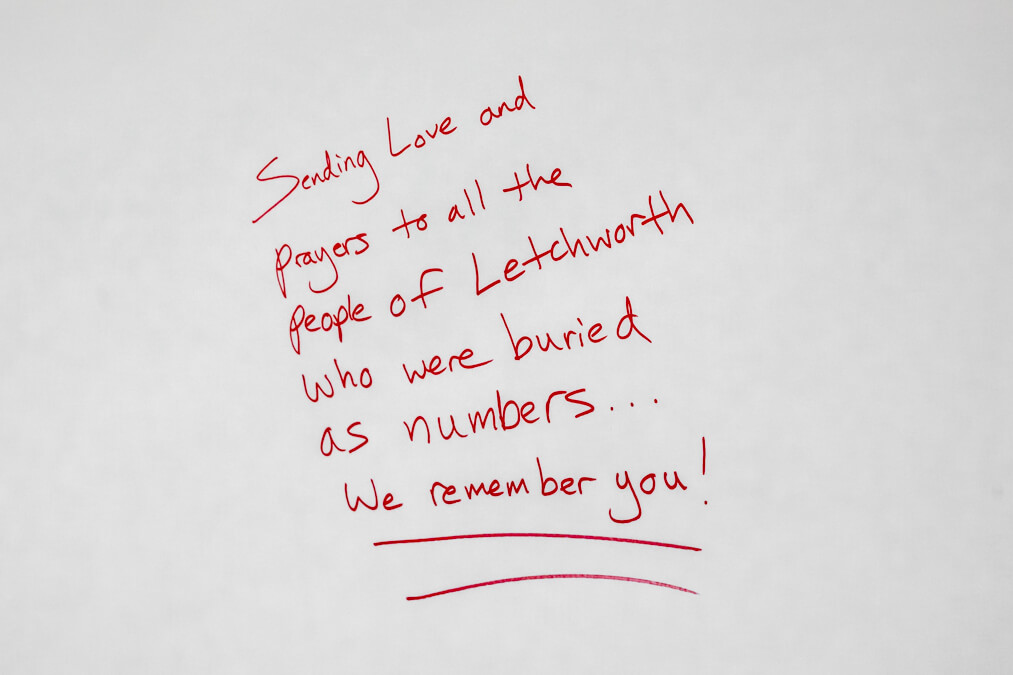 Sending Love and
prayers to all the
people of Letchworth
who were buried
as numbers...
We remember you!